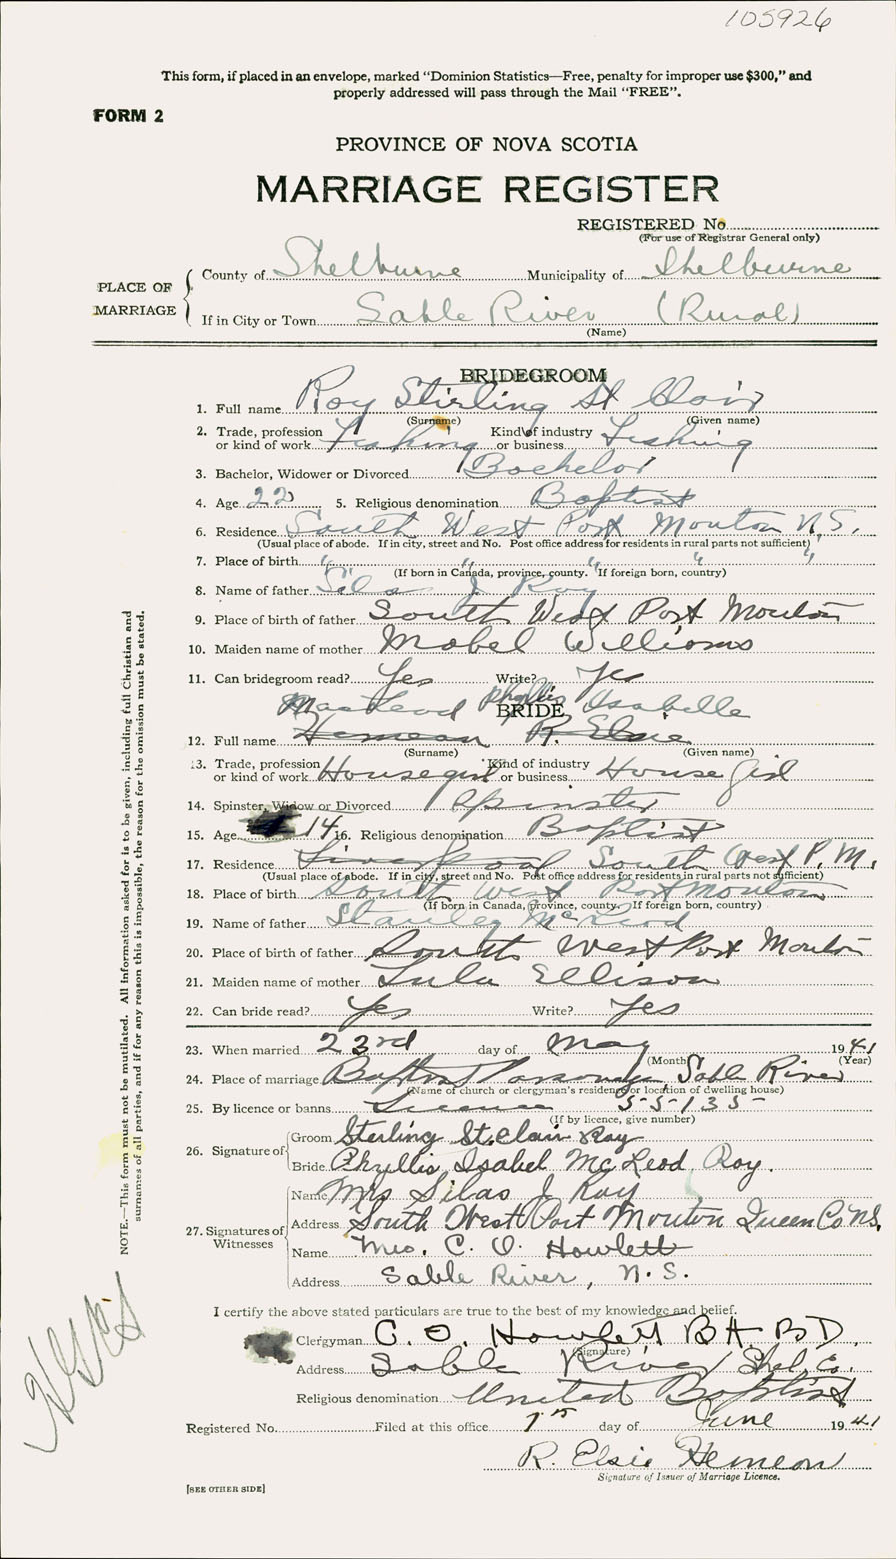 105926
This form, if placed in an envelope, marked “Dominion Statistics—Free, penalty for improper use $300,” and
properly addressed will pass through the Mail “FREE”.
FORM 2
PROVINCE OF NOVA SCOTIA
MARRIAGE REGISTER
REGISTERED No.
(For use of Registrar General only)
PLACE OF MARRIAGE
County of Shelburne Municipality of Shelburne
If in City or Town Sable River (Rural)
(Name)
BRIDEGROOM
1. Full name Roy Stirling St Clair
(Surname) (Given name)
2. Trade, profession or kind of work Fishing Kind of industry or business Fishing
3. Bachelor, Widower or Divorced Bachelor
4. Age 22 5. Religious denomination Baptist
6. Residence South West Port Mouton N.S.
(Usual place of abode. If in city, street and No. Post office address for residents in rural parts not sufficient)
7. Place of birth " " " " "
(If born in Canada, province, county. If foreign born, country)
8. Name of father Silas J Roy
9. Place of birth of father South West Port Mouton
10. Maiden name of mother Mabel Williams
11. Can bridegroom read? Yes Write? Yes
MacLeod Phyllis Isabelle
BRIDE
12. Full name Hemeon R. Elsie
(Surname) (Given name)
13. Trade, profession or kind of work Housegirl Kind of industry or business House Girl
14. Spinster, Widow or Divorced Spinster
15. Age 14 16. Religious denomination Baptist
17. Residence Liverpool South West P.M.
(Usual place of abode. If in city, street and No. Post office address for residents in rural parts not sufficient)
18. Place of birth South West Port Mouton
(If born in Canada, province, county. If foreign born, country)
19. Name of father Stanley McLeod
20. Place of birth of father South West Port Mouton
21. Maiden name of mother Lula Ellison
22. Can bride read? Yes Write? Yes
23. When married 23rd day of May 1941
(Month) (Year)
24. Place of marriage Baptist Parsonage, Sable River
(Name of church or clergyman's residence or location of dwelling house)
25. By licence or banns Licence 55135
(If by licence, give number)
26. Signature of
Groom Sterling St.Clair Roy
Bride Phyllis Isabel McLeod Roy.
27. Signatures of Witnesses
Name Mrs Silas J Roy
Address South West Port Mouton Queen Co N.S.
Name Mrs. C. O. Howlett
Address Sable River, N.S.
I certify the above stated particulars are true to the best of my knowledge and belief.
Clergyman C. O. Howlett BA BD.
(Signature)
Address Sable River Shel. Co.
Religious denomination United Baptist
Registered No. Filed at this office 7th day of June 1941
R. Elsie Hemeon
Signature of Issuer of Marriage Licence.
[SEE OTHER SIDE]
NOTE.—This form must not be mutilated. All information asked for is to be given, including full Christian and
surnames of all parties, and if for any reason this is impossible, the reason for the omission must be stated.